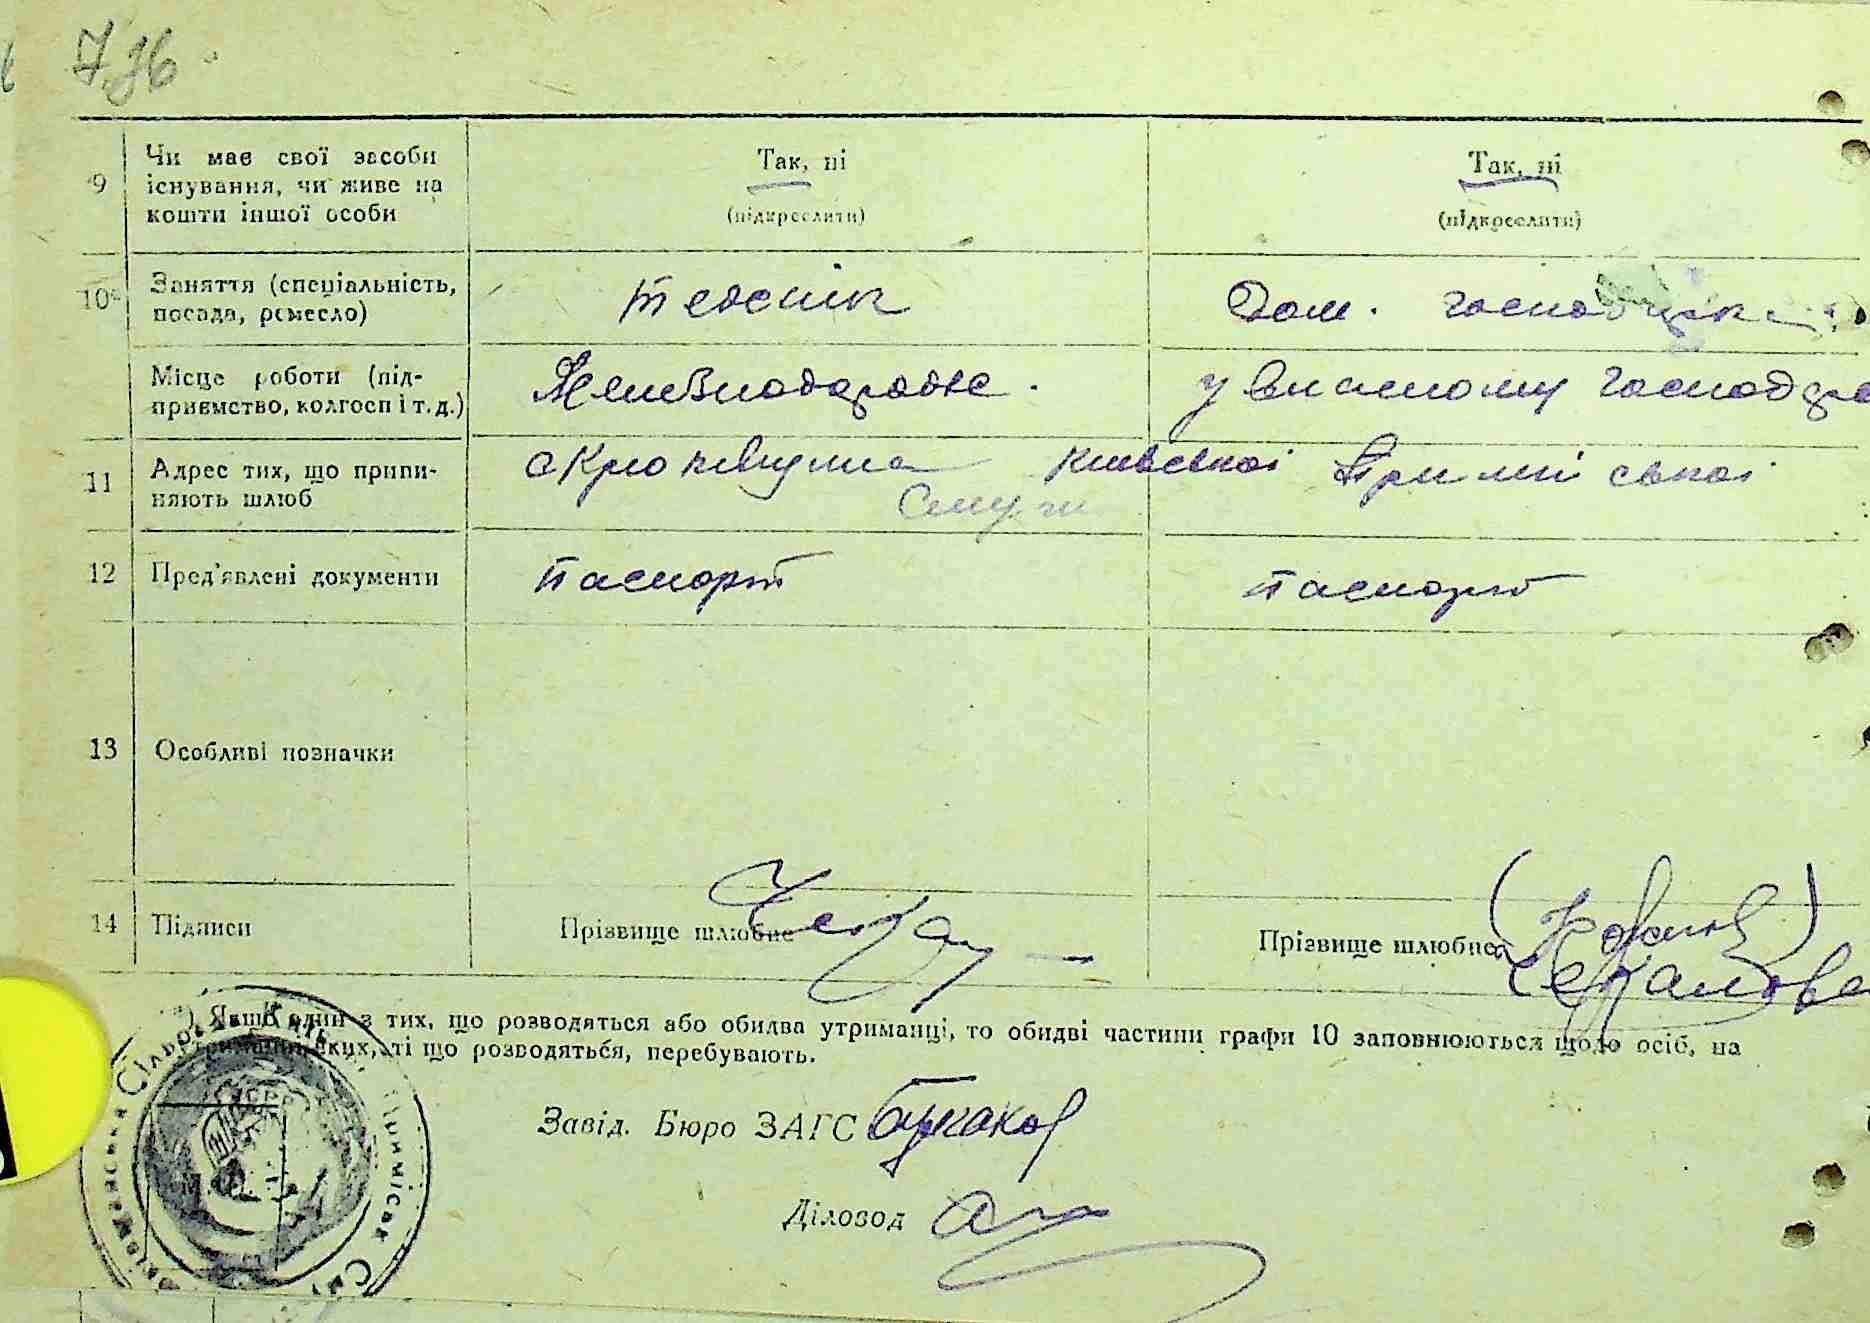 736
9
Чи має свої засоби
існування, чи живе на
кошти іншої особи
Так, ні
(підкреслити)
Так, ні
(підкреслити)
10
Заняття (спеціальність,
посада, ремесло)
Дом. господарка
Місце роботи (під-
приємство, колгосп і т. д.)
у власному господар
11
Адрес тих, що припи-
няють шлюб
Київської Приміської
Смуги
12
Пред'явлені документи
паспорт
паспорт
13
Особливі позначки
14
Підписи
Прізвище шлюбне
Прізвище шлюбне
Якщо один з тих, що розводяться або обидва утриманці, то обидві частини графи 10 заповнюються щодо осіб, на
яких, ті що розводяться, перебувають.
Завід. Бюро ЗАГС
Діловод